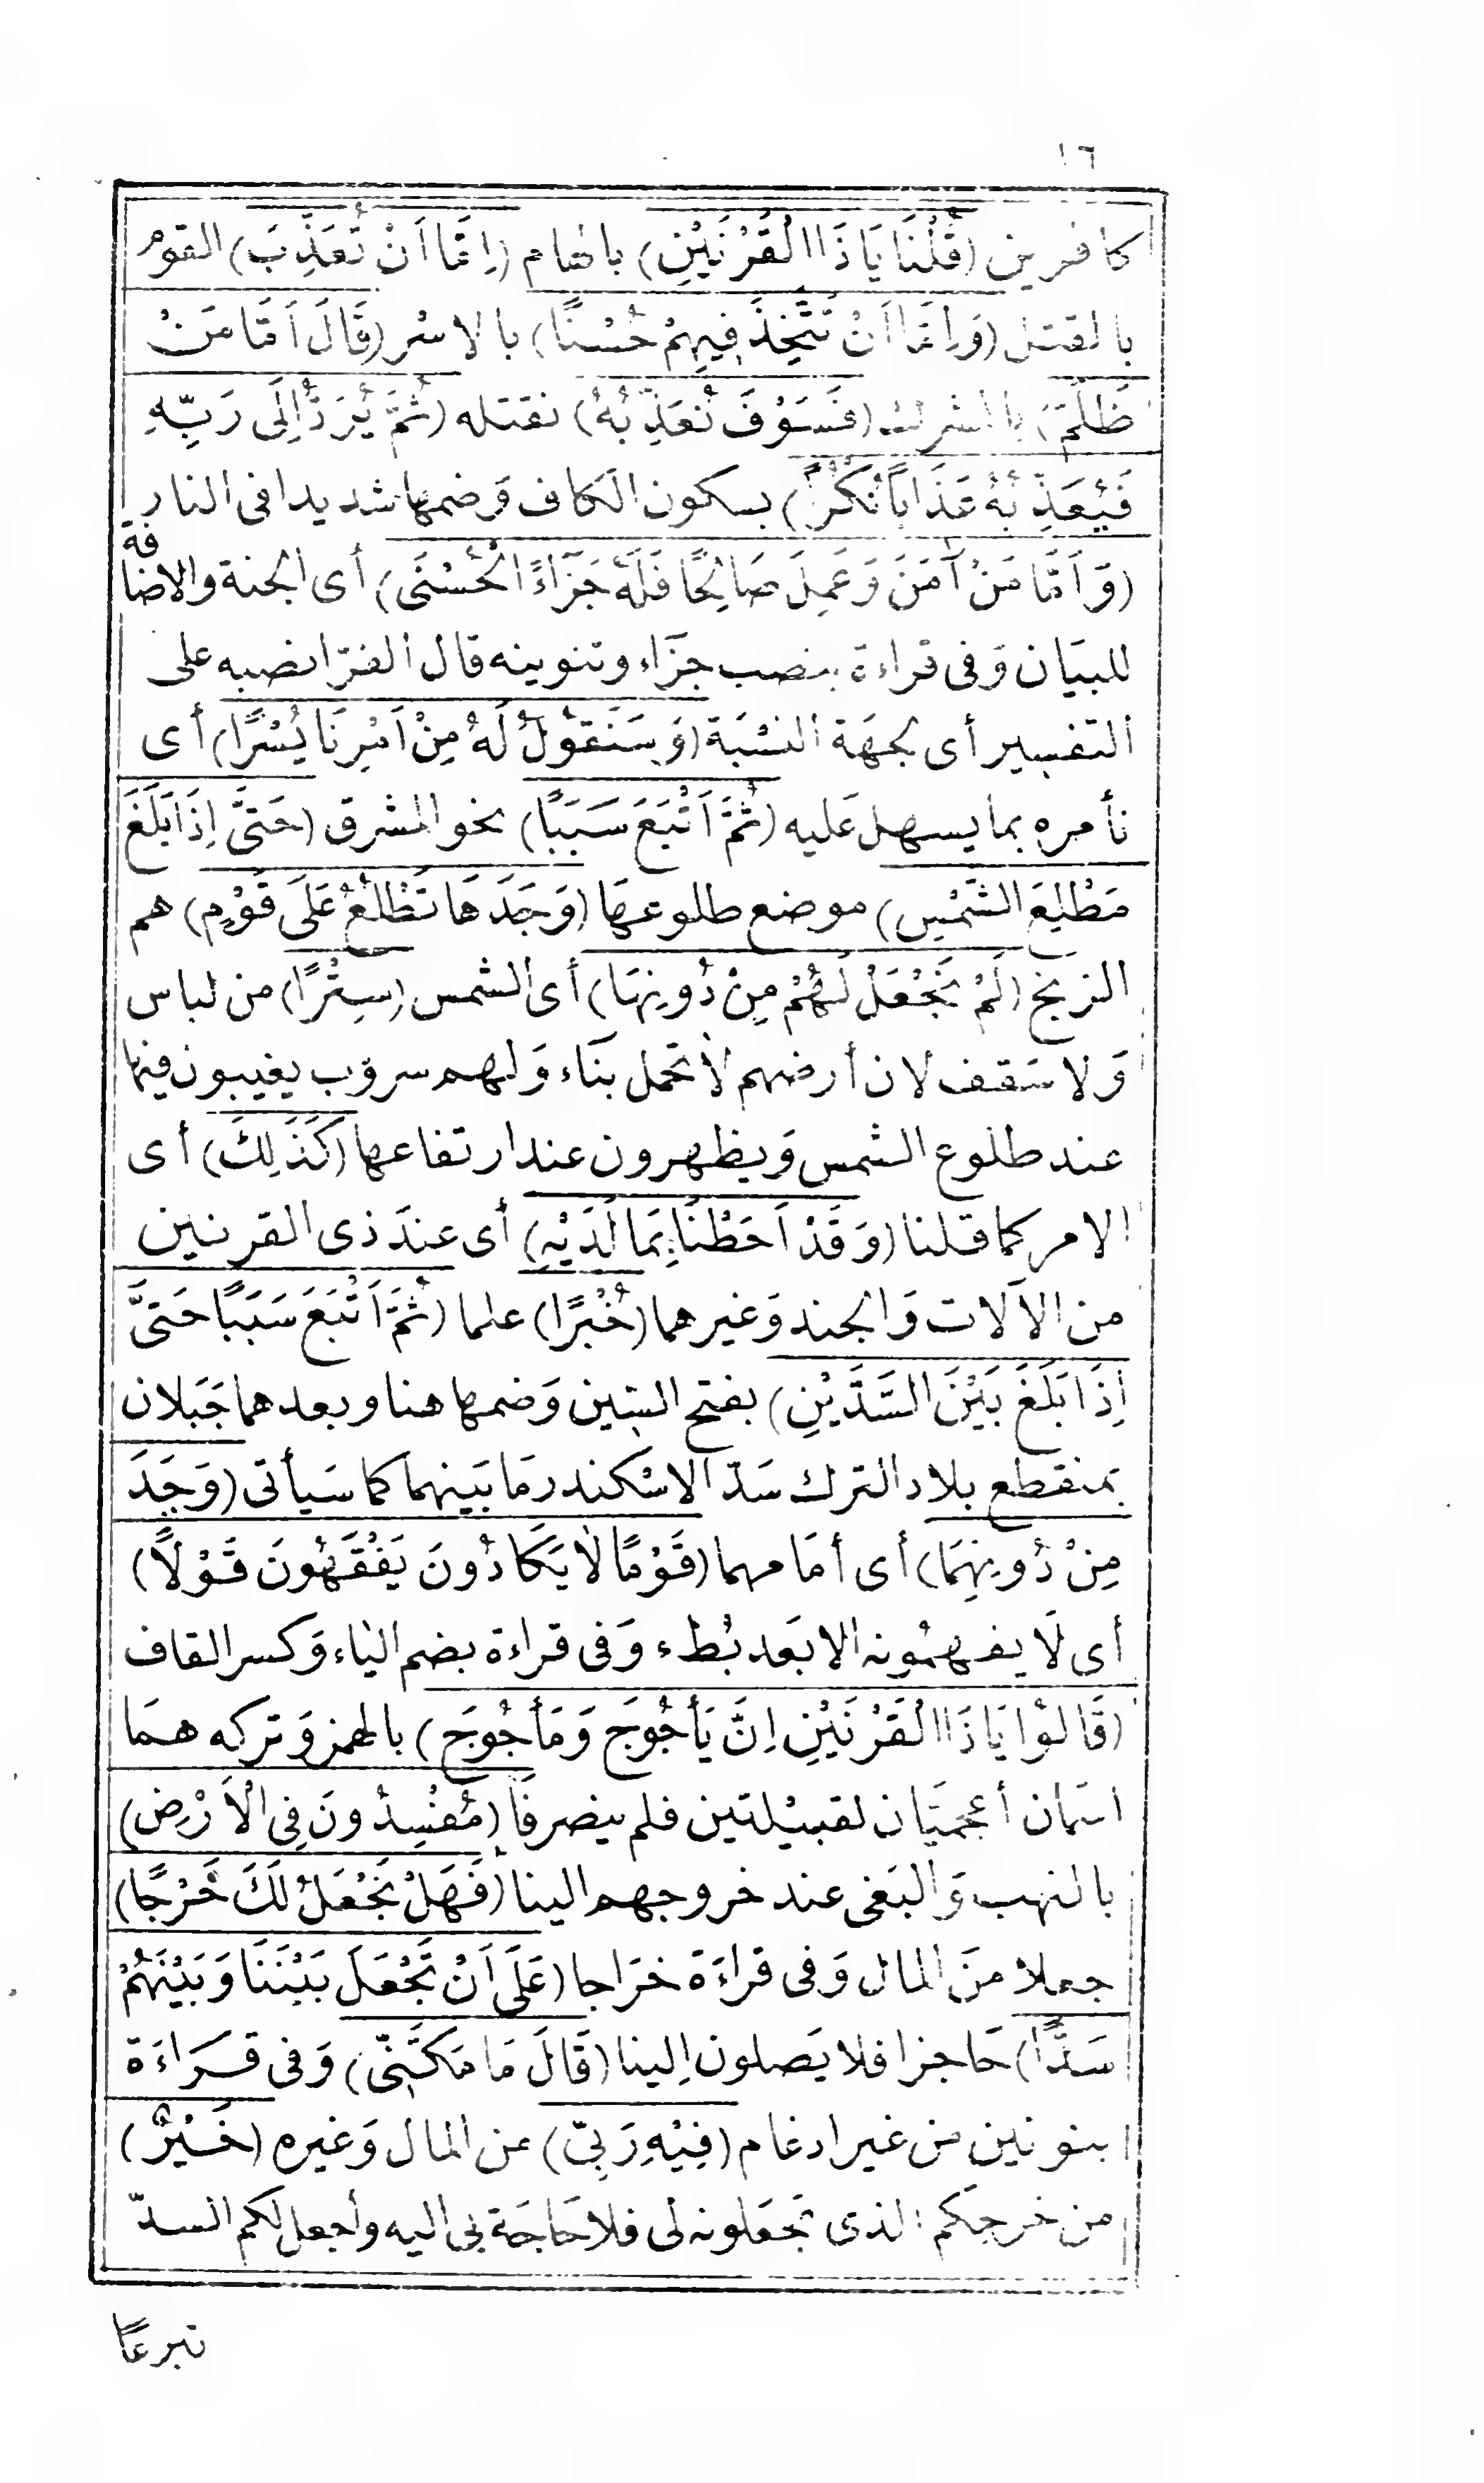 ١٦
كافرين (قُلْنَا يَا ذَا الْقَرْنَيْنِ) بالهام (اِمَّا اَنْ تُعَذِّبَ) القوم
بالقتل (وَاِمَّا اَنْ تَتَّخِذَ فِيهِمْ حُسْنًا) بالاسْر (قَالَ اَمَّا مَنْ
ظَلَمَ) بالشرك (فَسَوْفَ نُعَذِّبُهُ) نقتله (ثُمَّ يُرَدُّ اِلَى رَبِّهِ
فَيُعَذِّبُهُ عَذَابًا نُكْرًا) بسكون الكاف وَضمها شديدا فى النار
(وَاَمَّا مَنْ آمَنَ وَعَمِلَ صَالِحًا فَلَهُ جَزَآءً الْحُسْنَى) أى الجنة والاضافة
للبيَان وَفى قراءة بنصب جزَآء وتنوينه قال الفرّا نصبه على
التفسير أى لجهَة النسْبَة (وَسَنَقُولُ لَهُ مِنْ اَمْرِنَا يُسْرًا) أى
نأمره بما يسهل عَليه (ثُمَّ اَتْبَعَ سَبَبًا) نحو المشرق (حَتَّى اِذَا بَلَغَ
مَطْلِعَ الشَّمْسِ) موضع طلوعهَا (وَجَدَهَا تَطْلُعُ عَلَى قَوْمٍ) هم
الزنج (لَمْ نَجْعَلْ لَهُمْ مِنْ دُونِهَا) أى الشمس (سِتْرًا) من لباس
وَلا سَقف لان أرضهم لاَ تحمل بنَاء وَلهم سروب يغيبون فيها
عند طلوع الشمس وَيظهرون عند ارتفاعها (كَذَلِكَ) أى
الامر كما قلنا (وَقَدْ اَحَطْنَا بِمَا لَدَيْهِ) أى عندَ ذى القرنين
من الآلات وَالجند وَغيرهما (خُبْرًا) علما (ثُمَّ اَتْبَعَ سَبَبًا حَتَّى
اِذَا بَلَغَ بَيْنَ السَّدَّيْنِ) بفتح السّين وَضمها هنا وبعدهما جَبَلان
بمنقطع بلاد الترك سَدّ الاسْكندر مَا بَينهما كما سَيأتى (وَجَدَ
مِنْ دُونِهِمَا) أى أمَامهما (قَوْمًا لاَ يَكَادُونَ يَفْقَهُونَ قَوْلاً)
أى لَا يفهمُونه الا بَعد بُطء وَفى قراءة بضم اليَاء وَكسر القاف
(قَالوُا يَا ذَا الْقَرْنَيْنِ اِنَّ يَأْجُوجَ وَمَأْجُوجَ) بالهمز وَتركه همَا
اسمَان أعجميَان لقبيْلتين فلم ينصرفَا (مُفْسِدُونَ فِى الْاَرْضِ)
بالنهب وَالبَغى عند خروجهم الينا (فَهَلْ نَجْعَلُ لَكَ خَرْجًا)
جعلا منَ المال وَفى قراءَة خرَاجا (عَلَى اَنْ تَجْعَلَ بَيْنَنَا وَبَيْنَهُمْ
سَدًّا) حَاجزا فلا يَصلون اِلينا (قَالَ مَا مَكَّنّى) وَفى قرَاءَة
بنونين من غير ادغام (فِيْهِ رَبِّى) من المال وَغيره (خَيْرٌ)
من خرجكم الذى تجعَلونه لى فلا حَاجَة بى اليه وأجعل لكم السدّ
تبرعًا